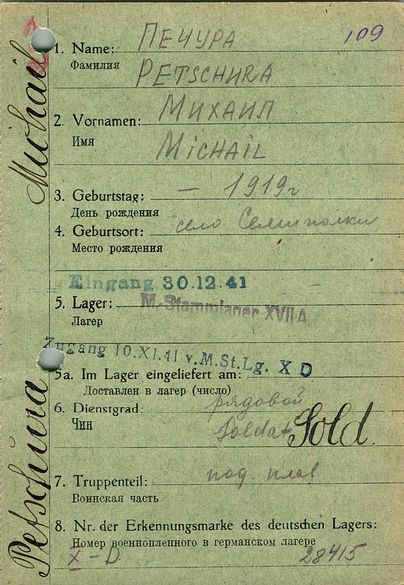 109
1. Name: ПЕЧУРА
Фамилия PETSCHURA
2. Vornamen: МИХАИЛ
Имя MICHAIL
3. Geburtstag: — 1919г
День рождения
4. Geburtsort: село Семиполки
Место рождения
Eingang 30.12.41
5. Lager: M.-Stammlager XVII A
Лагерь
Zugang 10.XI.41 v. M.St.Lg. X D
5a. Im Lager eingeliefert am:
Доставлен в лагерь (число)
6. Dienstgrad: рядовой
Чин Soldat Sold.
7. Truppenteil:
Воинская часть
8. Nr. der Erkennungsmarke des deutschen Lagers:
Номер военнопленного в германском лагере
X-D 28415
Petschura Michail